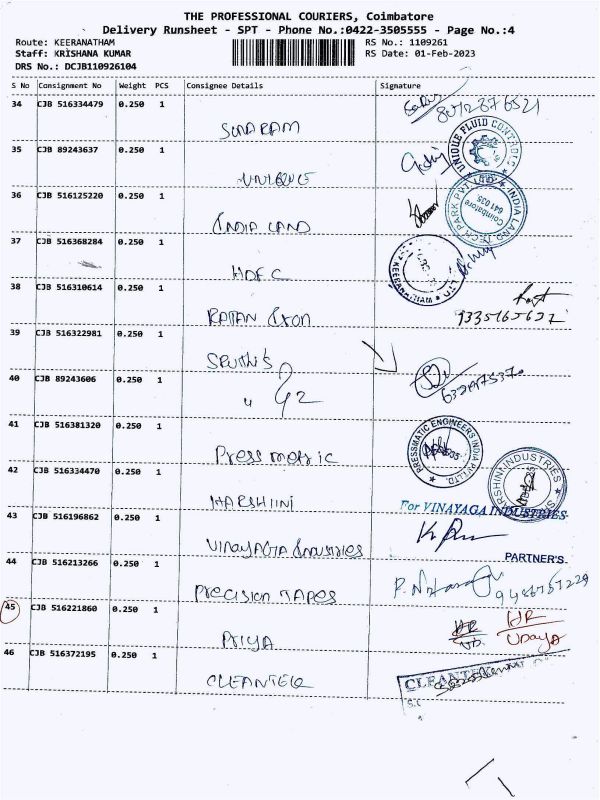 THE PROFESSIONAL COURIERS, Coimbatore
Delivery Runsheet - SPT - Phone No.:0422-3505555 - Page No.:4
Route: KEERANATHAM
RS No.: 1109261
Staff: KRISHANA KUMAR
RS Date: 01-Feb-2023
DRS No.: DCJB110926104
S No Consignment No Weight PCS Consignee Details Signature
34 CJB 516334479 0.250 1
8072876521
SUNDARAM
35 CJB 89243637 0.250 1
UNIQUE FLUID CONTROLS
UNIQUE
36 CJB 516125220 0.250 1
INDIA LAND TECH PARK PVT. LTD.
Coimbatore
641 035.
INDIA LAND
37 CJB 516368284 0.250 1
HDFC
KEERANATHAM
38 CJB 516310614 0.250 1
RATAN
9335165627
39 CJB 516322981 0.250 1
SRUTHI'S
40 CJB 89243606 0.250 1
"
41 CJB 516381320 0.250 1
PRESSMATIC ENGINEERS INDIA PVT LTD.
Pressmetric
42 CJB 516334470 0.250 1
HARSHINI INDUSTRIES
HARSHINI
For VINAYAGA INDUSTRIES
43 CJB 516196862 0.250 1
VINAYAGA Industries
PARTNER'S.
44 CJB 516213266 0.250 1
Precision TAPES
45 CJB 516221860 0.250 1
HR
HR
Udaya
PRIYA
46 CJB 516372195 0.250 1
CLEANTEK
CLEANTEK